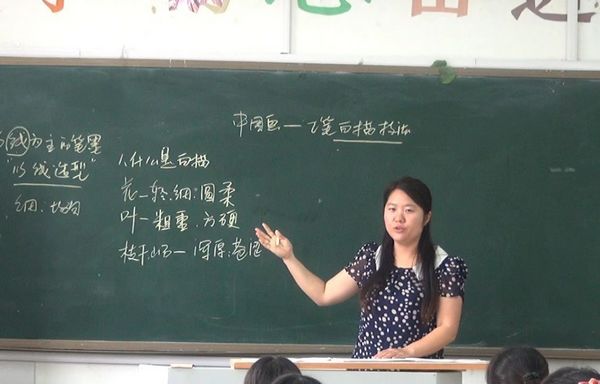 中国画—工笔白描技法
线为主的笔墨
"以线造型"
细、均匀
1、什么是白描
花—轻、细、圆柔
叶—粗重、方硬
枝干山石—浑厚、苍